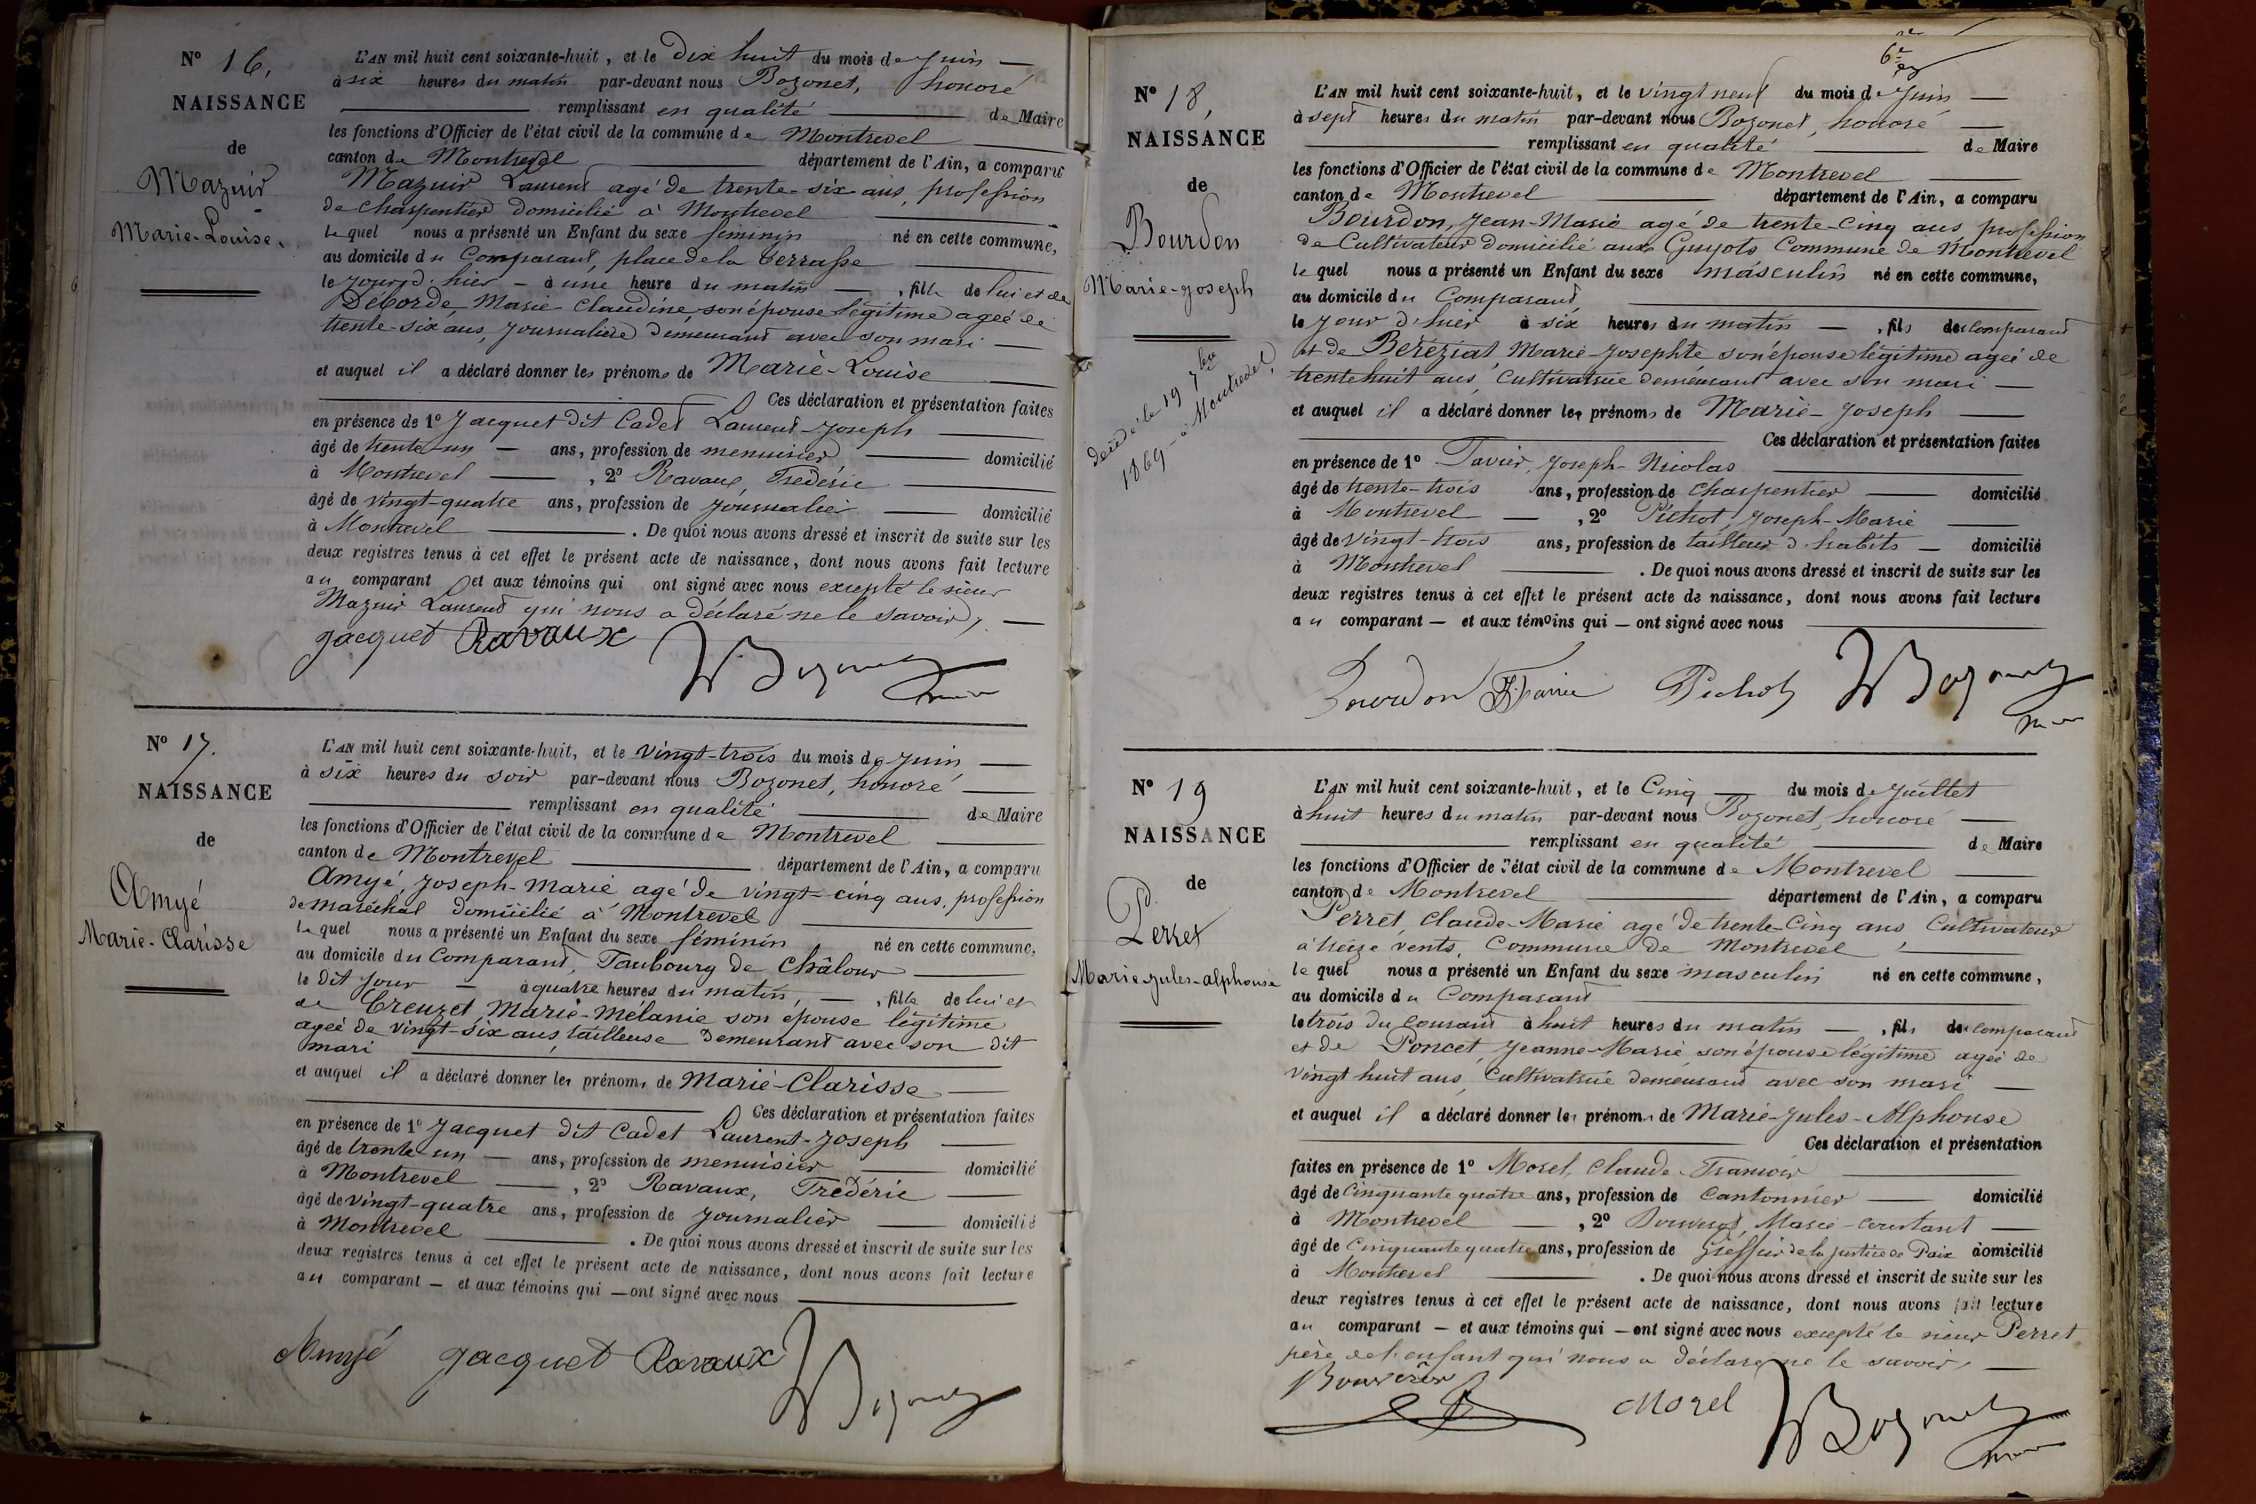 N° 16,
NAISSANCE
de
Mazuir
Marie-Louise.
L'AN mil huit cent soixante-huit, et le Dix huit du mois de Juin
à six heures du matin par-devant nous Bozonet, honoré
remplissant en qualité de Maire
les fonctions d'Officier de l'état civil de la commune de Montrevel
canton de Montrevel département de l'Ain, a comparu
Mazuir Laurent agé de trente-six ans, profession
de charpentier domicilié à Montrevel
le quel nous a présenté un Enfant du sexe féminin né en cette commune,
au domicile du Comparant, place de la Terrasse
le jour d'hier - à une heure du matin, fille de lui et de
Deborde, Marie-Claudine son épouse légitime ageé de
trente-six ans, journalière demeurant avec son mari
et auquel il a déclaré donner les prénoms de Marie-Louise
Ces déclaration et présentation faites
en présence de 1° Jacquet dit Cadet Laurent-Joseph
âgé de trente-un ans, profession de menuisier domicilié
à Montrevel, 2° Ravaux, Frédéric
âgé de vingt-quatre ans, profession de journalier domicilié
à Montrevel. De quoi nous avons dressé et inscrit de suite sur les
deux registres tenus à cet effet le présent acte de naissance, dont nous avons fait lecture
au comparant et aux témoins qui ont signé avec nous excepté le sieur
Mazuir Laurent qui nous a déclaré ne le savoir,
Jacquet Ravaux Bozonet
N° 17.
NAISSANCE
de
Amyé
Marie-Clarisse
L'AN mil huit cent soixante-huit, et le vingt-trois du mois de Juin
à six heures du soir par-devant nous Bozonet, honoré
remplissant en qualité de Maire
les fonctions d'Officier de l'état civil de la commune de Montrevel
canton de Montrevel département de l'Ain, a comparu
Amyé, Joseph-Marie agé de vingt-cinq ans, profession
de maréchal domicilié à Montrevel
le quel nous a présenté un Enfant du sexe féminin né en cette commune,
au domicile du Comparant, Faubourg de Châlour
le dit jour à quatre heures du matin, fille de lui et
de Creuzet Marie-Mélanie son épouse légitime
ageé de vingt-six ans, tailleuse demeurant avec son dit
mari
et auquel il a déclaré donner les prénoms de Marie-Clarisse
Ces déclaration et présentation faites
en présence de 1° Jacquet dit Cadet Laurent-Joseph
âgé de trente-un ans, profession de menuisier domicilié
à Montrevel, 2° Ravaux, Frédéric
âgé de vingt-quatre ans, profession de journalier domicilié
à Montrevel. De quoi nous avons dressé et inscrit de suite sur les
deux registres tenus à cet effet le présent acte de naissance, dont nous avons fait lecture
au comparant - et aux témoins qui - ont signé avec nous
Amyé Jacquet Ravaux Bozonet
N° 18,
NAISSANCE
de
Bourdon
Marie-Joseph
décédé le 19 7bre
1869 - à Montrevel,
L'AN mil huit cent soixante-huit, et le vingt neuf du mois de Juin
à sept heures du matin par-devant nous Bozonet, honoré
remplissant en qualité de Maire
les fonctions d'Officier de l'état civil de la commune de Montrevel
canton de Montrevel département de l'Ain, a comparu
Bourdon, Jean-Marie agé de trente-cinq ans, profession
de Cultivateur domicilié aux Guyots Commune de Montrevel
le quel nous a présenté un Enfant du sexe masculin né en cette commune,
au domicile du Comparant
le jour d'hier à six heures du matin, fils du comparant
et de Béréziat Marie-Josephte son épouse légitime ageé de
trente huit ans, cultivatrice demeurant avec son mari
et auquel il a déclaré donner les prénoms de Marie-Joseph
Ces déclaration et présentation faites
en présence de 1° Tavier, Joseph-Nicolas
âgé de trente-trois ans, profession de charpentier domicilié
à Montrevel, 2° Pichot, Joseph-Marie
âgé de vingt-trois ans, profession de tailleur d'habits domicilié
à Montrevel. De quoi nous avons dressé et inscrit de suite sur les
deux registres tenus à cet effet le présent acte de naissance, dont nous avons fait lecture
au comparant - et aux témoins qui - ont signé avec nous
Bourdon Pichot Bozonet
N° 19
NAISSANCE
de
Perret
Marie-Jules-Alphonse
L'AN mil huit cent soixante-huit, et le Cinq du mois de Juillet
à huit heures du matin par-devant nous Bozonet, honoré
remplissant en qualité de Maire
les fonctions d'Officier de l'état civil de la commune de Montrevel
canton de Montrevel département de l'Ain, a comparu
Perret, Claude-Marie agé de trente-cinq ans Cultivateur
à treize vents, Commune de Montrevel
le quel nous a présenté un Enfant du sexe masculin né en cette commune,
au domicile du Comparant
le trois du courant à huit heures du matin, fils du comparant
et de Poncet, Jeanne-Marie son épouse légitime ageé de
vingt huit ans, cultivatrice demeurant avec son mari
et auquel il a déclaré donner les prénoms de Marie-Jules-Alphonse
Ces déclaration et présentation
faites en présence de 1° Morel, Claude-François
âgé de cinquante quatre ans, profession de cantonnier domicilié
à Montrevel, 2° Marie-Constant
âgé de cinquante quatre ans, profession de Greffier de la justice de Paix domicilié
à Montrevel. De quoi nous avons dressé et inscrit de suite sur les
deux registres tenus à cet effet le présent acte de naissance, dont nous avons fait lecture
au comparant - et aux témoins qui - ont signé avec nous excepté le sieur Perret
père de l'enfant qui nous a déclaré ne le savoir,
Morel Bozonet